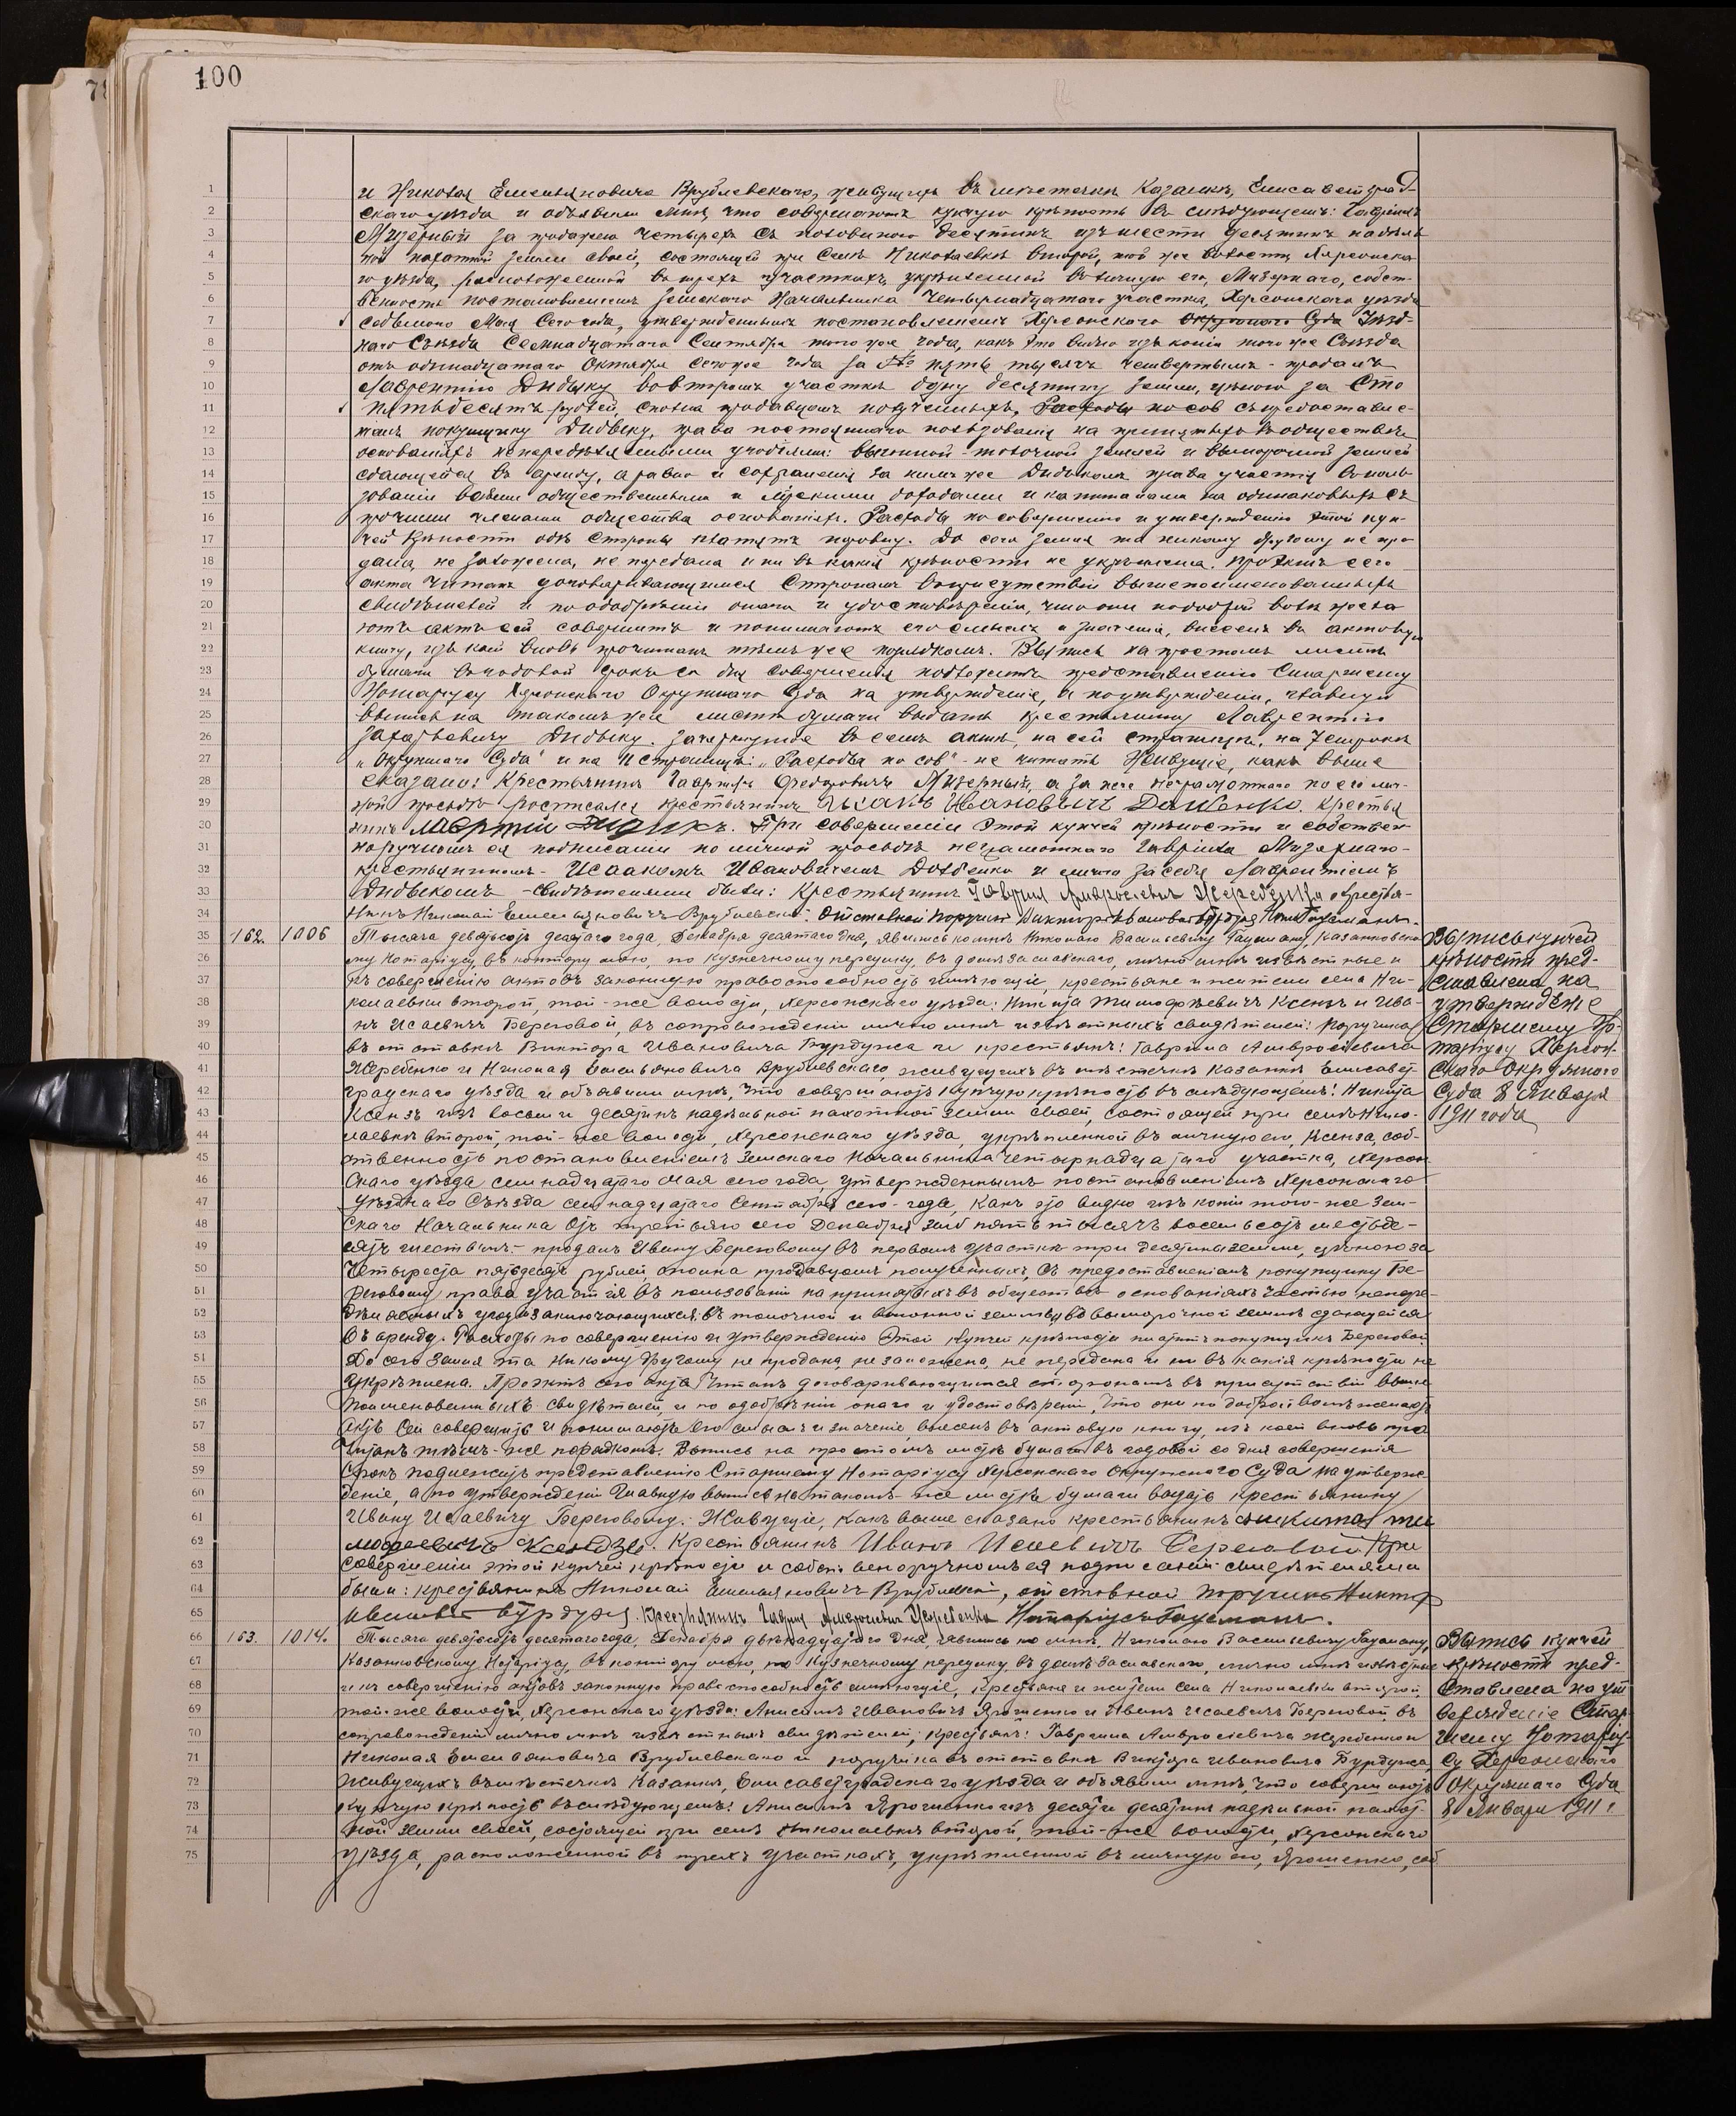 100
1 и Николая Емельяновича Врублевскаго, живущихъ въ местечкѣ Казанкѣ, Елисаветград-
2 скаго уѣзда и объявили мнѣ, что совершаютъ купчую крѣпость въ слѣдующемъ: Гавріилъ
3 Мизерный за продажею четырехъ съ половиною десятинъ изъ шести десятинъ надѣль
4 ной пахатной земли своей, состоящей при Селѣ Николаевкѣ второй, той же волости, Херсонска
5 го уѣзда, расположенной въ трехъ участкахъ, укрѣпленной въ личную его, Мизернаго, собст-
6 венность постановленіемъ Земскаго Начальника Четырнадцатаго участка, Херсонскаго уѣзда
7 седьмого Мая Сего года, утвержденнымъ постановленіемъ Херсонскаго Окружнаго Суда Уѣзд-
8 наго Съѣзда Семнадцатаго Сентября того же года, какъ это видно изъ копіи того же Съѣзда
9 отъ одинадцатаго Октября сего же года за № пять тысячъ четвертымъ - продалъ
10 Лаврентію Дидыку во второмъ участкѣ одну десятину земли, цѣною за Сто
11 пятьдесятъ рублей, сполна продавцомъ полученныхъ, Расходы по сов съ предоставле-
12 ніемъ покупщику Дидыку, права постояннаго пользованія на принятыхъ въ обществѣ
13 основаніяхъ непередѣляемыми угодіями: выгонной - толочной землей и выморочной землей
14 сдающейся въ аренду, а равно и сохраненія за нимъ же Дидыкомъ права участія въ поль-
15 зованіи всѣми общественными и мірскими доходами и капиталами на одинаковыхъ съ
16 прочими членами общества основаніяхъ. Расходы по совершенію и утвержденію этой куп-
17 чей крѣпости обѣ Стороны платятъ поровну. До сего земля та никому другому не про
18 дана, не заложена, не передана и ни въ какія крѣпости не укрѣплена. Проэктъ сего
19 акта читанъ договаривающимся Сторонамъ въ присутствіи вышепоименованныхъ
20 свидѣтелей и по одобреніи онаго и удостовѣреніи, что они по доброй волѣ жела
21 ютъ актъ сей совершить и понимаютъ его смыслъ и значеніе, внесенъ въ актовую
22 книгу, изъ коей вновь прочитанъ тѣмъ же порядкомъ. Выпись на простомъ листѣ
23 бумаги въ годовой срокъ со дня совершенія подлежитъ представленію Старшему
24 Нотаріусу Херсонскаго Окружнаго Суда на утвержденіе, а по утвержденіи, главную
25 выпись на такомъ же листѣ бумаги выдать крестьянину Лаврентію
26 Захарьевичу Дидыку. Зачеркнутые въ семъ актѣ, на сей страницѣ, на 7 строкѣ
27 „Окружнаго Суда“ и на 11 строкѣ: „Расходы по сов“ - не читать. Живущіе, какъ выше
28 сказано: Крестьянинъ Гавріилъ Федоровичъ Мизерный, а за него неграмотнаго по его лич-
29 ной просьбѣ росписался крестьянинъ Исакъ Ивановичъ Довбенко. Крестья
30 нинъ Лаврентій Дидикъ. При совершеніи этой купчей крѣпости и собствен
31 норучномъ ея подписаніи по личной просьбѣ неграмотнаго Гавріила Мизернаго -
32 крестьяниномъ - Исаакомъ Ивановичемъ Довбенко и лично за себя Лаврентіемъ
33 Дидыкомъ - Свидѣтелями были: Крестьянинъ Гавріилъ Амвросіевичъ Жеребенко крестья-
34 нинъ Николай Емельяновичъ Врублевскій. Отставной Поручикъ Викторъ Ивановичъ Бурдужа Нотаріусъ Гаузманъ.
35 162. 1006 Тысяча девятьсотъ десятаго года, Декабря десятаго дня, явились ко мнѣ Николаю Васильевичу Гаузману, Казанковско-
36 му Нотаріусу, въ контору мою, по Кузнечному переулку, въ домѣ Заславскаго, лично мнѣ извѣстные и
37 къ совершенію актовъ законную правоспособность имѣющіе, крестьяне и жители села Ни-
38 колаевки второй, той-же волости, Херсонскаго уѣзда: Никита Тимофѣевичъ Ксензъ и Ива-
39 нъ Исаевичъ Береговой, въ сопровожденіи лично мнѣ извѣстныхъ свидѣтелей: поручика
40 въ отставкѣ Виктора Ивановича Бурдужа и крестьянъ: Гавріила Амвросіевича
41 Жеребенко и Николая Емельяновича Врублевскаго, живущихъ въ мѣстечкѣ Казанкѣ Елисавет-
42 градскаго уѣзда и объявили мнѣ, что совершаютъ купчую крѣпость въ слѣдующемъ: Никита
43 Ксензъ изъ восьми десятинъ надѣльной пахотной земли своей, состоящей при селѣ Нико-
44 лаевкѣ второй, той-же волости, Херсонскаго уѣзда, укрѣпленной въ личную его, Ксенза, соб-
45 ственность постановленіемъ Земскаго Начальника Четырнадцатаго участка, Херсон
46 скаго уѣзда семнадцатаго Мая сего года, утвержденнымъ постановленіемъ Херсонскаго
47 Уѣзднаго Съѣзда семнадцатаго Сентября сего-года, какъ это видно изъ копіи того-же Зем-
48 скаго Начальника отъ третьяго сего Декабря за № пять тысячъ восемьсотъ шестьде-
49 сятъ шестымъ,- продалъ Ивану Береговому въ первомъ участкѣ три десятины земли, цѣною за
50 Четыреста пятьдесятъ рублей, сполна продавцомъ полученныхъ, съ предоставленіемъ покупщику Бе-
51 реговому права участія въ пользованіи на принятыхъ въ обществѣ основаніяхъ частью непере-
52 дѣляемыхъ угодій заключающихся: въ толочной и выгонной землѣ и въ выморочной землѣ сдающейся
53 въ аренду. Расходы по совершенію и утвержденію этой купчей крѣпости платитъ покупщикъ Береговой.
54 До сего земля та никому другому не продана, не заложена, не передана и ни въ какія крѣпости не
55 укрѣплена. Проэктъ сего акта читанъ договаривающимся сторонамъ въ присутствіи выше
56 поименованныхъ свидѣтелей, и по одобреніи онаго и удостовѣреніи, что они по доброй волѣ желаютъ
57 актъ сей совершить и понимаютъ его смыслъ и значеніе внесенъ въ актовую книгу, изъ коей вновь про
58 читанъ тѣмъ-же порядкомъ. Выпись на простомъ листѣ бумаги въ годовой со дня совершенія
59 срокъ подлежитъ представленію Старшему Нотаріусу Херсонскаго Окружного Суда на утверж-
60 деніе, а по утвержденіи Главную выпись на такомъ-же листѣ бумаги выдать крестьянину
61 Ивану Исаевичу Береговому. Живущіе, какъ выше сказано крестьянинъ Никита Ти
62 мофеевичъ Ксендзъ. Крестьянинъ Иванъ Исаевичъ Береговой При
63 совершеніи этой купчей крѣпости и собственоручномъ ея подписаніи свидѣтелями
64 были: крестьянинъ Николай Емельяновичъ Врублевскій, отставной поручикъ Викторъ
65 Ивановичъ Бурдужа. Крестьянинъ Гавріилъ Амвросіевичъ Жеребенко Нотаріусъ Гаузманъ.
66 163. 1014. Тысяча девятьсотъ десятаго года, Декабря двѣнадцатаго дня, явились ко мнѣ, Николаю Васильевичу Гаузману,
67 Казанковскому Нотаріусу, въ контору мою, по Кузнечному переулку, въ домѣ Заславскаго, лично мнѣ извѣстные
68 и къ совершенію актовъ законную правоспособность имѣющіе, крестьяне и жители села Николаевки второй,
69 той-же волости, Херсонскаго уѣзда: Анисимъ Ивановичъ Ярошенко и Иванъ Исаевичъ Береговой, въ
70 сопровожденіи лично мнѣ извѣстныхъ свидѣтелей; крестьянъ: Гавріила Амвросіевича Жеребенко и
71 Николая Емельяновича Врублевскаго и поручика въ отставкѣ Виктора Ивановича Бурдужа,
72 живущихъ въ мѣстечкѣ Казанкѣ, Елисаветградскаго уѣзда и объявили мнѣ, что совершаютъ
73 купчую крѣпость въ слѣдующемъ: Анисимъ Ярошенко изъ десяти десятинъ надѣльной пахот-
74 ной земли своей, состоящей при селѣ Николаевкѣ второй, той-же волости, Херсонскаго
75 уѣзда, расположенной въ трехъ участкахъ, укрѣпленной въ личную его, Ярошенко, соб
Выпись купчей
крѣпости пред-
ставлена на
утвержденіе
Старшему Но-
таріусу Херсон-
скаго Окружнаго
Суда 8 Января
1911 года
Выпись купчей
крѣпости пред-
ставлена на ут
вержденіе Стар-
шему Нотаріу-
су Херсонскаго
Окружнаго Суда
8 Января 1911 г.